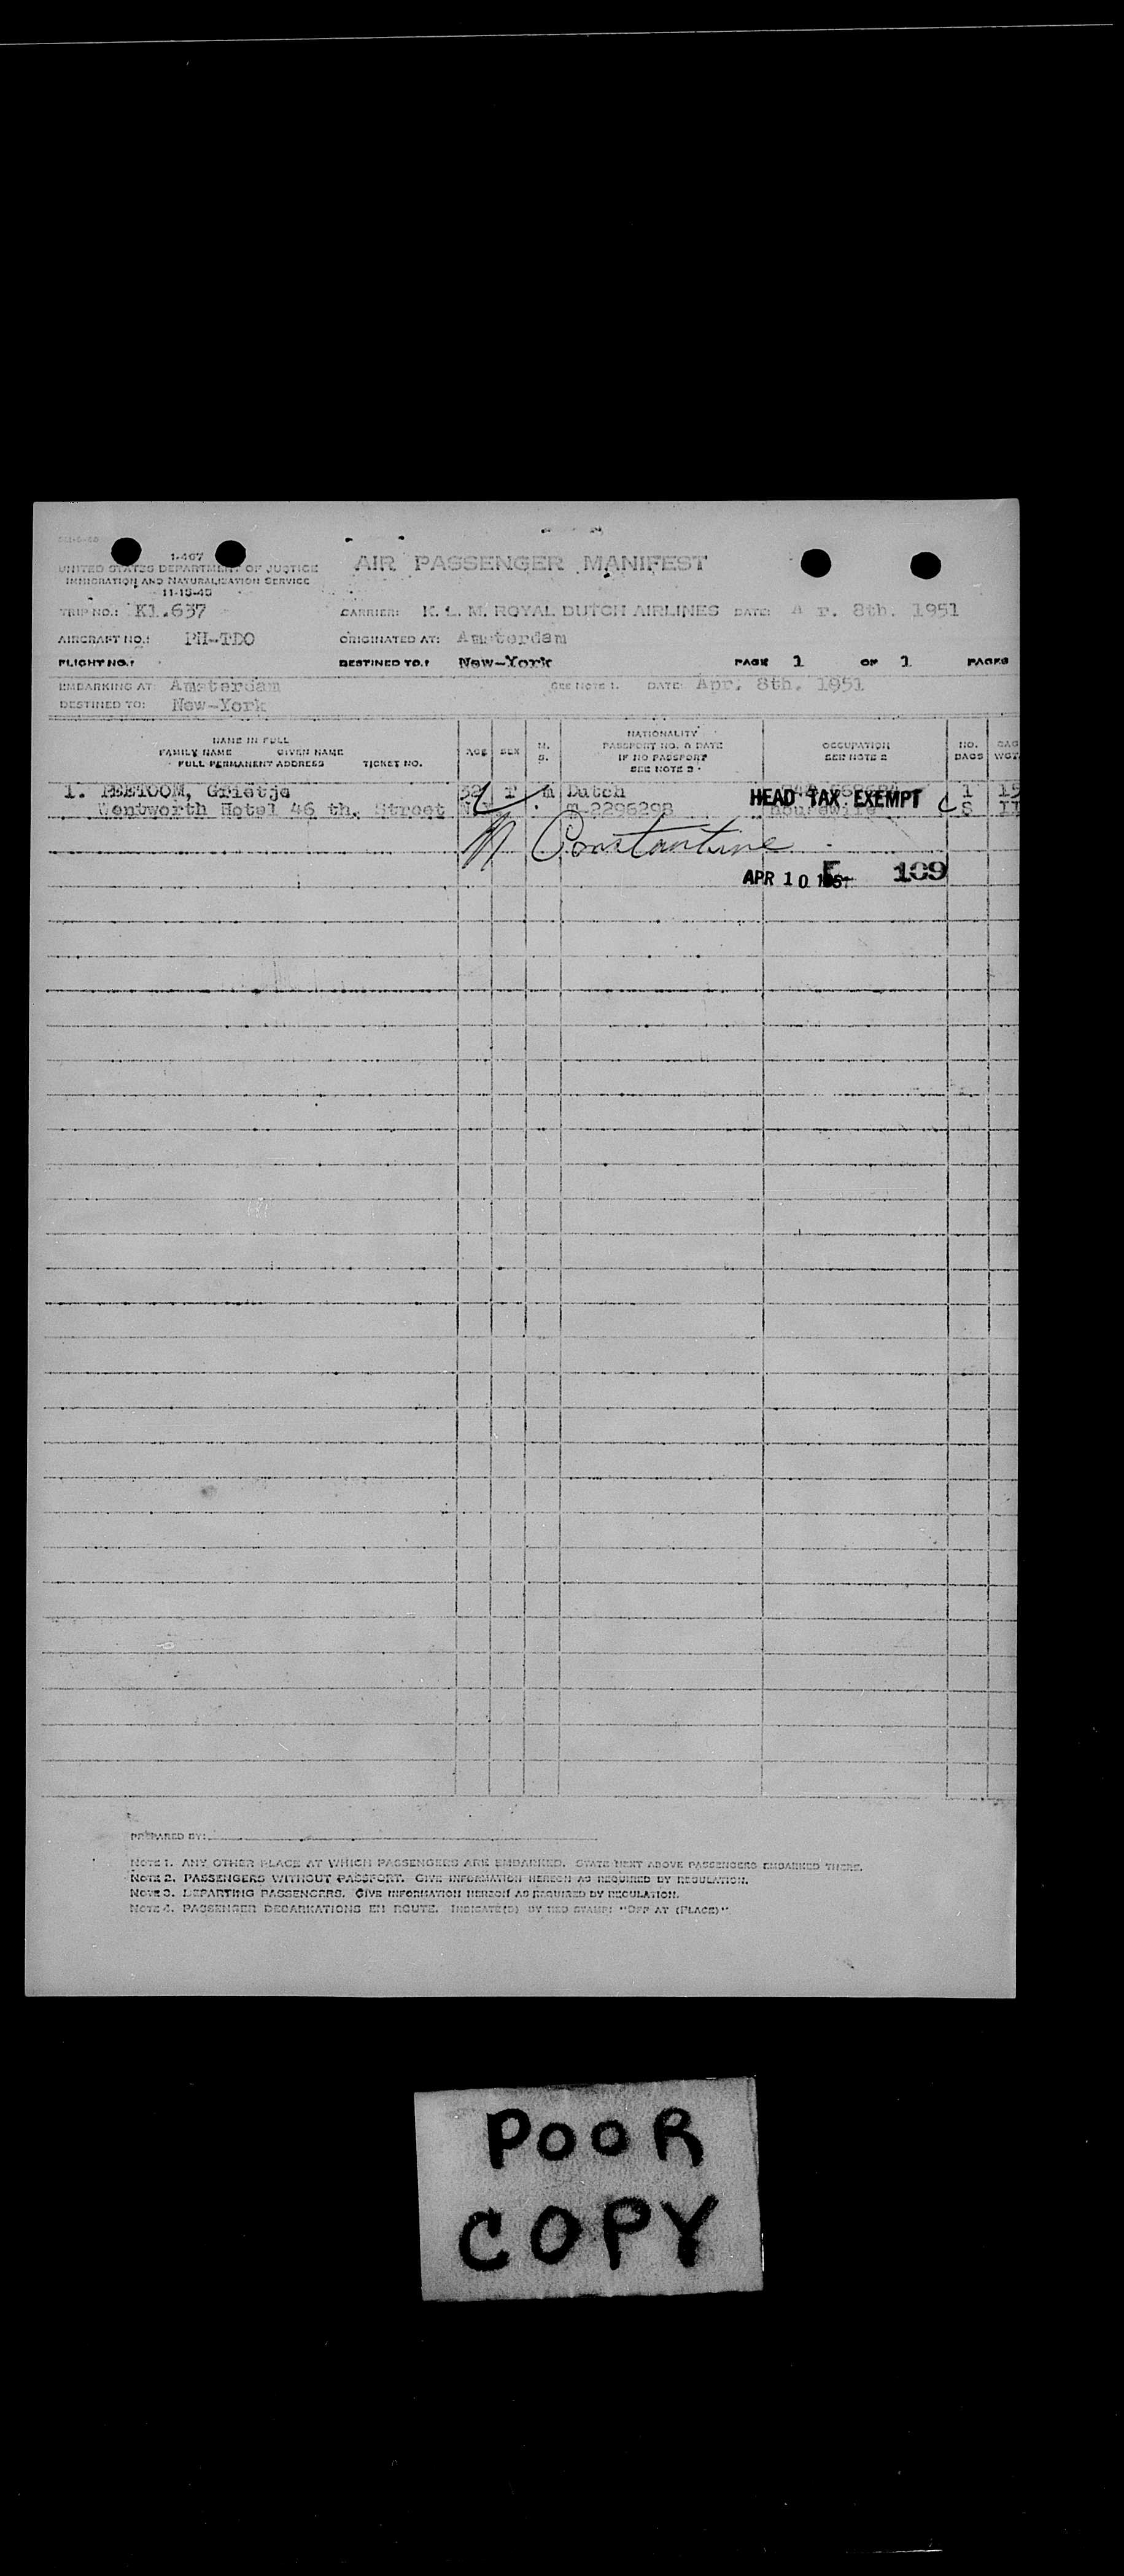 1-467
UNITED STATES DEPARTMENT OF JUSTICE
IMMIGRATION AND NATURALIZATION SERVICE
11-15-45
AIR PASSENGER MANIFEST
TRIP NO.: Kl.637 CARRIER: K. L. M. ROYAL DUTCH AIRLINES DATE: A r. 8th. 1951
AIRCRAFT NO.: PH-TDO ORIGINATED AT: Amsterdam
FLIGHT NO.: DESTINED TO.: New-York PAGE 1 OF 1 PAGES
EMBARKING AT: Amsterdam SEE NOTE 1. DATE: Apr. 8th. 1951
DESTINED TO: New-York
NAME IN FULL
FAMILY NAME GIVEN NAME
FULL PERMANENT ADDRESS TICKET NO.
AGE SEX M. S.
NATIONALITY
PASSPORT NO. & DATE
IF NO PASSPORT
SEE NOTE 3
OCCUPATION
SEE NOTE 2
NO. BAGS
BAG WGT.
1. PEETOOM, Grietje 32 F M Dutch 1
Wentworth Hotel 46 th. Street N.Y. housewife
HEAD TAX EXEMPT
N Constantine
APR 10 1951 109
PREPARED BY:
NOTE 1. ANY OTHER PLACE AT WHICH PASSENGERS ARE EMBARKED. STATE NEXT ABOVE PASSENGERS EMBARKED THERE.
NOTE 2. PASSENGERS WITHOUT PASSPORT. GIVE INFORMATION HEREON AS REQUIRED BY REGULATION.
NOTE 3. DEPARTING PASSENGERS. GIVE INFORMATION HEREON AS REQUIRED BY REGULATION.
NOTE 4. PASSENGER DEBARKATIONS EN ROUTE. INDICATE(D) BY RED STAMP: "OFF AT (PLACE)"
POOR
COPY